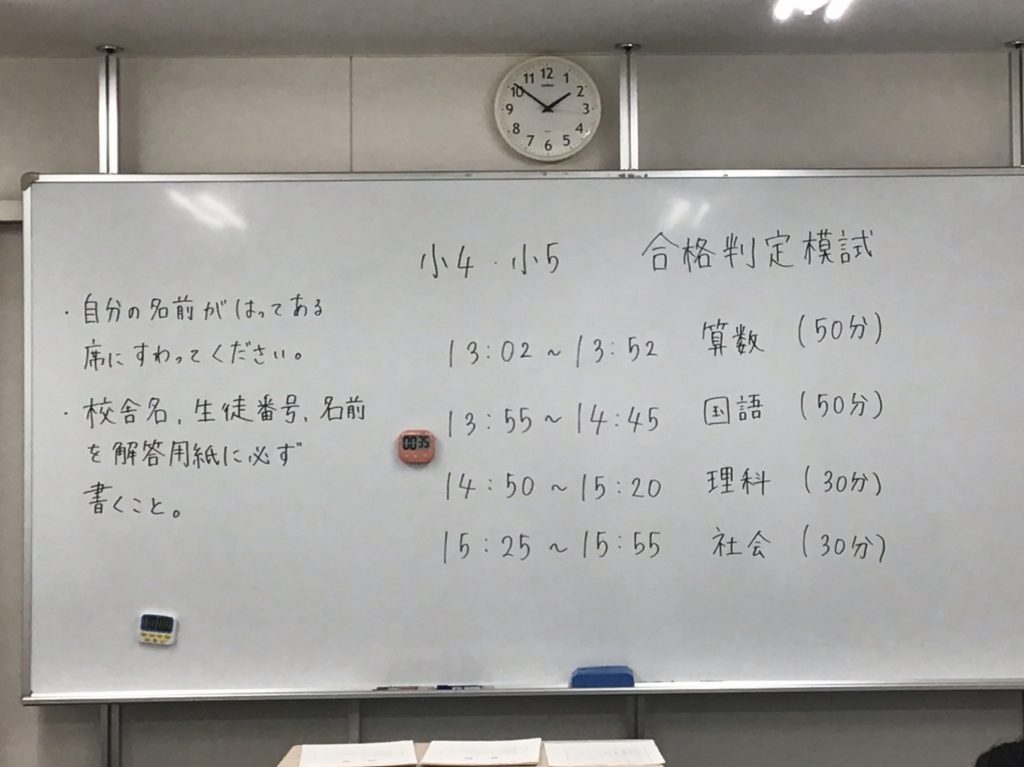 12
1
2
3
4
5
6
7
8
9
10
11
小4・小5 合格判定模試
・自分の名前がはってある
席にすわってください。
・校舎名、生徒番号、名前
を解答用紙に必ず
書くこと。
13:02～13:52 算数 (50分)
13:55～14:45 国語 (50分)
14:50～15:20 理科 (30分)
15:25～15:55 社会 (30分)
00 35